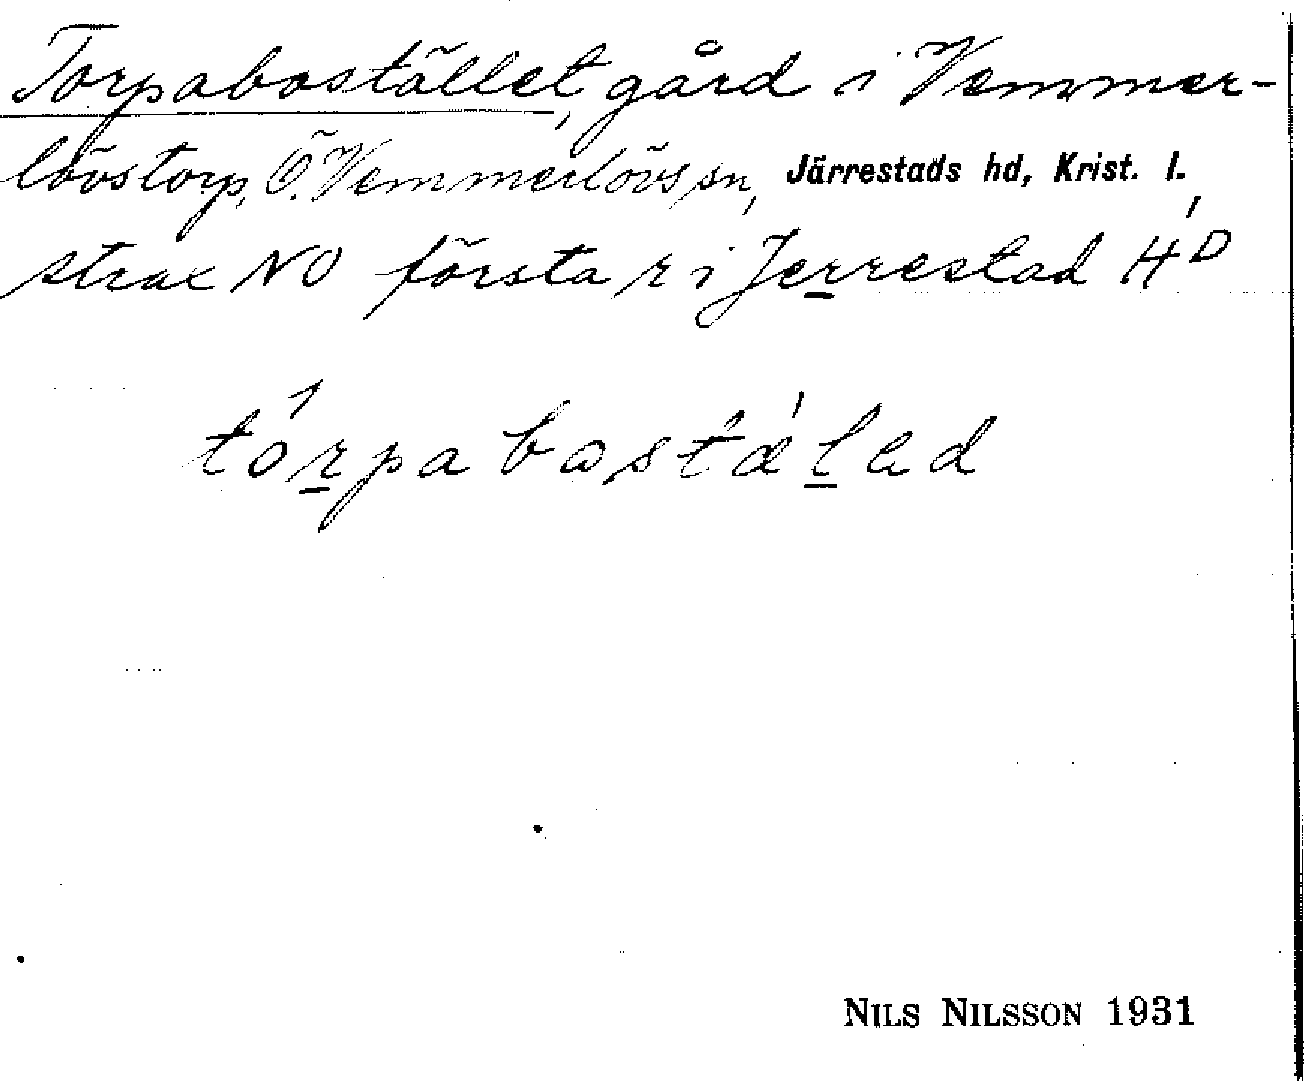 Torpabostället, gård i Vemmer-
lövstorp, Ö. Vemmerlövs sn, Järrestads hd, Krist. l.
strax NO första r i Jerrestad HD
torpabostälad
NILS NILSSON 1931